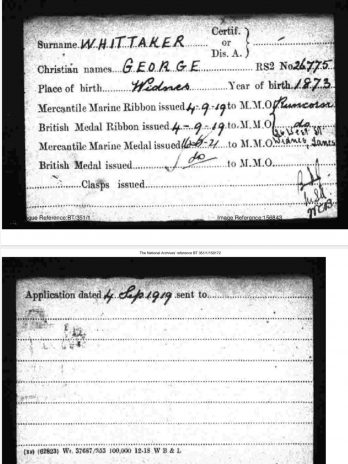 Surname WHITTAKER Certif. or Dis. A. }
Christian names GEORGE RS2 No 26775
Place of birth Widnes Year of birth 1873
Mercantile Marine Ribbon issued 4-9-19 to M.M.O. Runcorn
British Medal Ribbon issued 4-9-19 to M.M.O. do
Mercantile Marine Medal issued to M.M.O. West Widnes, Lancs
British Medal issued do to M.M.O.
Clasps issued
Image Reference:
The National Archives' reference BT 351/1/
Application dated 4 Sep 1919 sent to
(62823) Wt. 37687/353 100,000 12-18 W B & L